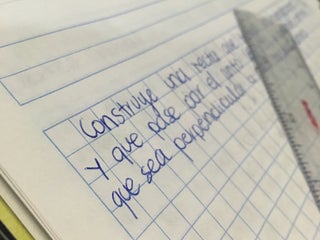 Construye una recta que
y que pase por el punto
que sea perpendicular